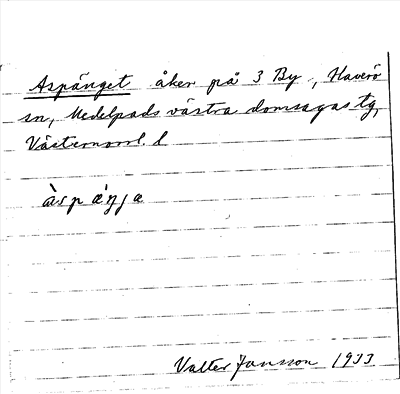 Aspänget åker på 3 By, Haverö
sn, Medelpads västra domsagas tg,
Västernorrl. l
àspæ̀ŋja
Valter Jansson 1933